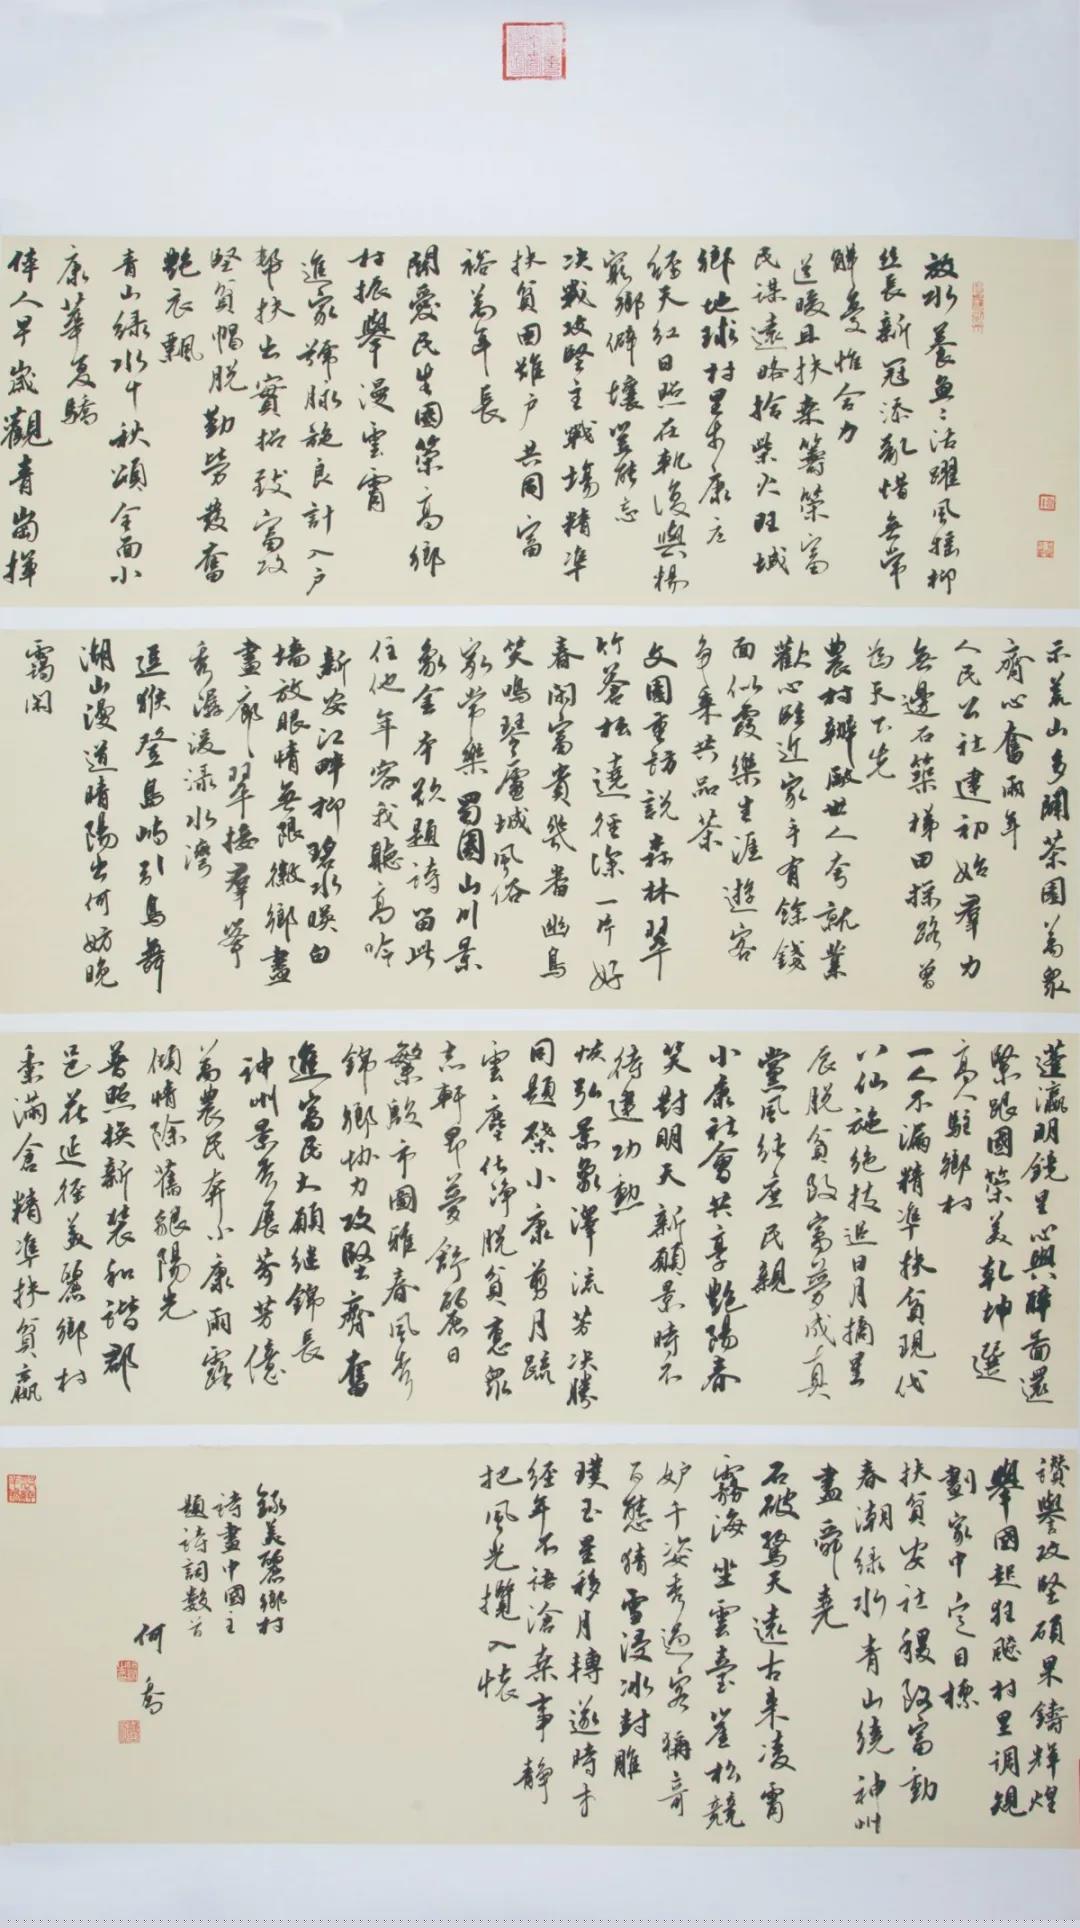 放水養魚〻活躍風搖柳
絲長新冠添亂惜無常
解憂惟合力
送暖且扶桑籌策富
民謀遠略拾柴火旺城
鄉地球村里步康庄
綺天紅日照在軌復興揚
窮鄉僻壤豈能忘
决戰攻堅主戰場精準
扶貧困難户共同富
裕萬年長
關愛民生國策高鄉
村振舉漫雲霄
進家號脉施良計入户
幫扶出實招致富攻
堅貧帽脱勤勞發奮
艷衣飄
青山绿水千秋頌全面小
康華夏驕
偉人早歲觀青崗揮
示荒山多闢茶園萬衆
齊心奮兩年
人民公社建初始羣力
無邊石築梯田探路曾
為天下先
農村辦厰世人夸就業
歡心賍近家手有餘錢
面似霞樂生涯遊客
争乘共品茶
文園重訪説森林翠
竹蒼松遶徑深一片好
春闲富貴幾番幽鳥
笑鳴琴廬城風俗
家常樂蜀園山川景
象金本欲題詩留此
住他年容我聽高吟
新安江畔柳碧水暎白
墻放眼情無限徽鄉盡
畫廊翠接羣峯
秀潺湲渌水灣
逗猴登島嶼引鳥舞
湖山漫道晴陽出何妨晚
靄闲
蓬瀛明鏡里心與醉當還
緊跟國策美乾坤選
高人駐鄉村
一人不漏精準扶貧現代
八仙施绝技追日月摘星
辰脱貧致富夢成真
黨風純庶民親
小康社會共享艷陽春
笑對明天新願景時不
待建功勲
恢弘景象澤流芳决勝
同題槳小康剪月疏
雲塵化净脱貧惠衆
志軒昂夢舒麗日
繁駿市圖雅春風秀
錦鄉协力攻堅齊奮
進富民大願继錦長
神州景秀展芬芳億
萬農民奔小康雨露
傾情除舊貌陽光
普照换新裝和諧郡
邑花延徑美麗鄉村
黍滿倉精準扶貧贏
讚譽攻堅碩果鑄輝煌
舉國起狂飈村里调规
劃家中定目標
扶貧安社稷致富動
春潮绿水青山绕神州
盡舜堯
石破驚天遠古来凌霄
霧海坐雲臺崖松競
妒千姿秀過客稱奇
百態猜雪浸冰封雕
璞玉星移月轉遂時才
经年不語滄桑事靜
把風光攬入懷
録美麗鄉村
詩畫中國主
題詩詞數首
何喬